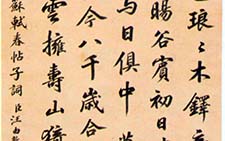 琅〻木鐸
暘谷賓初日
與日俱中
今八千歲合
雲擁壽山
蘇軾春帖子詞 臣汪由敦